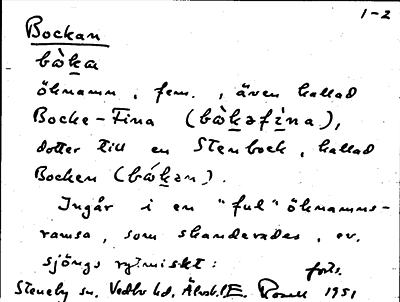 1-2
Bockan
bòka
öknamn, fem., även kallad
Bocke-Fina (bòkəfìna),
dotter till en Stenbock, kallad
Bocken (bókən).
Ingår i en "ful" öknamns-
ramsa, som skanderades, ev.
sjöngs rytmiskt:
forts.
Steneby sn. Vedbo hd. Älvsb. l. 1951